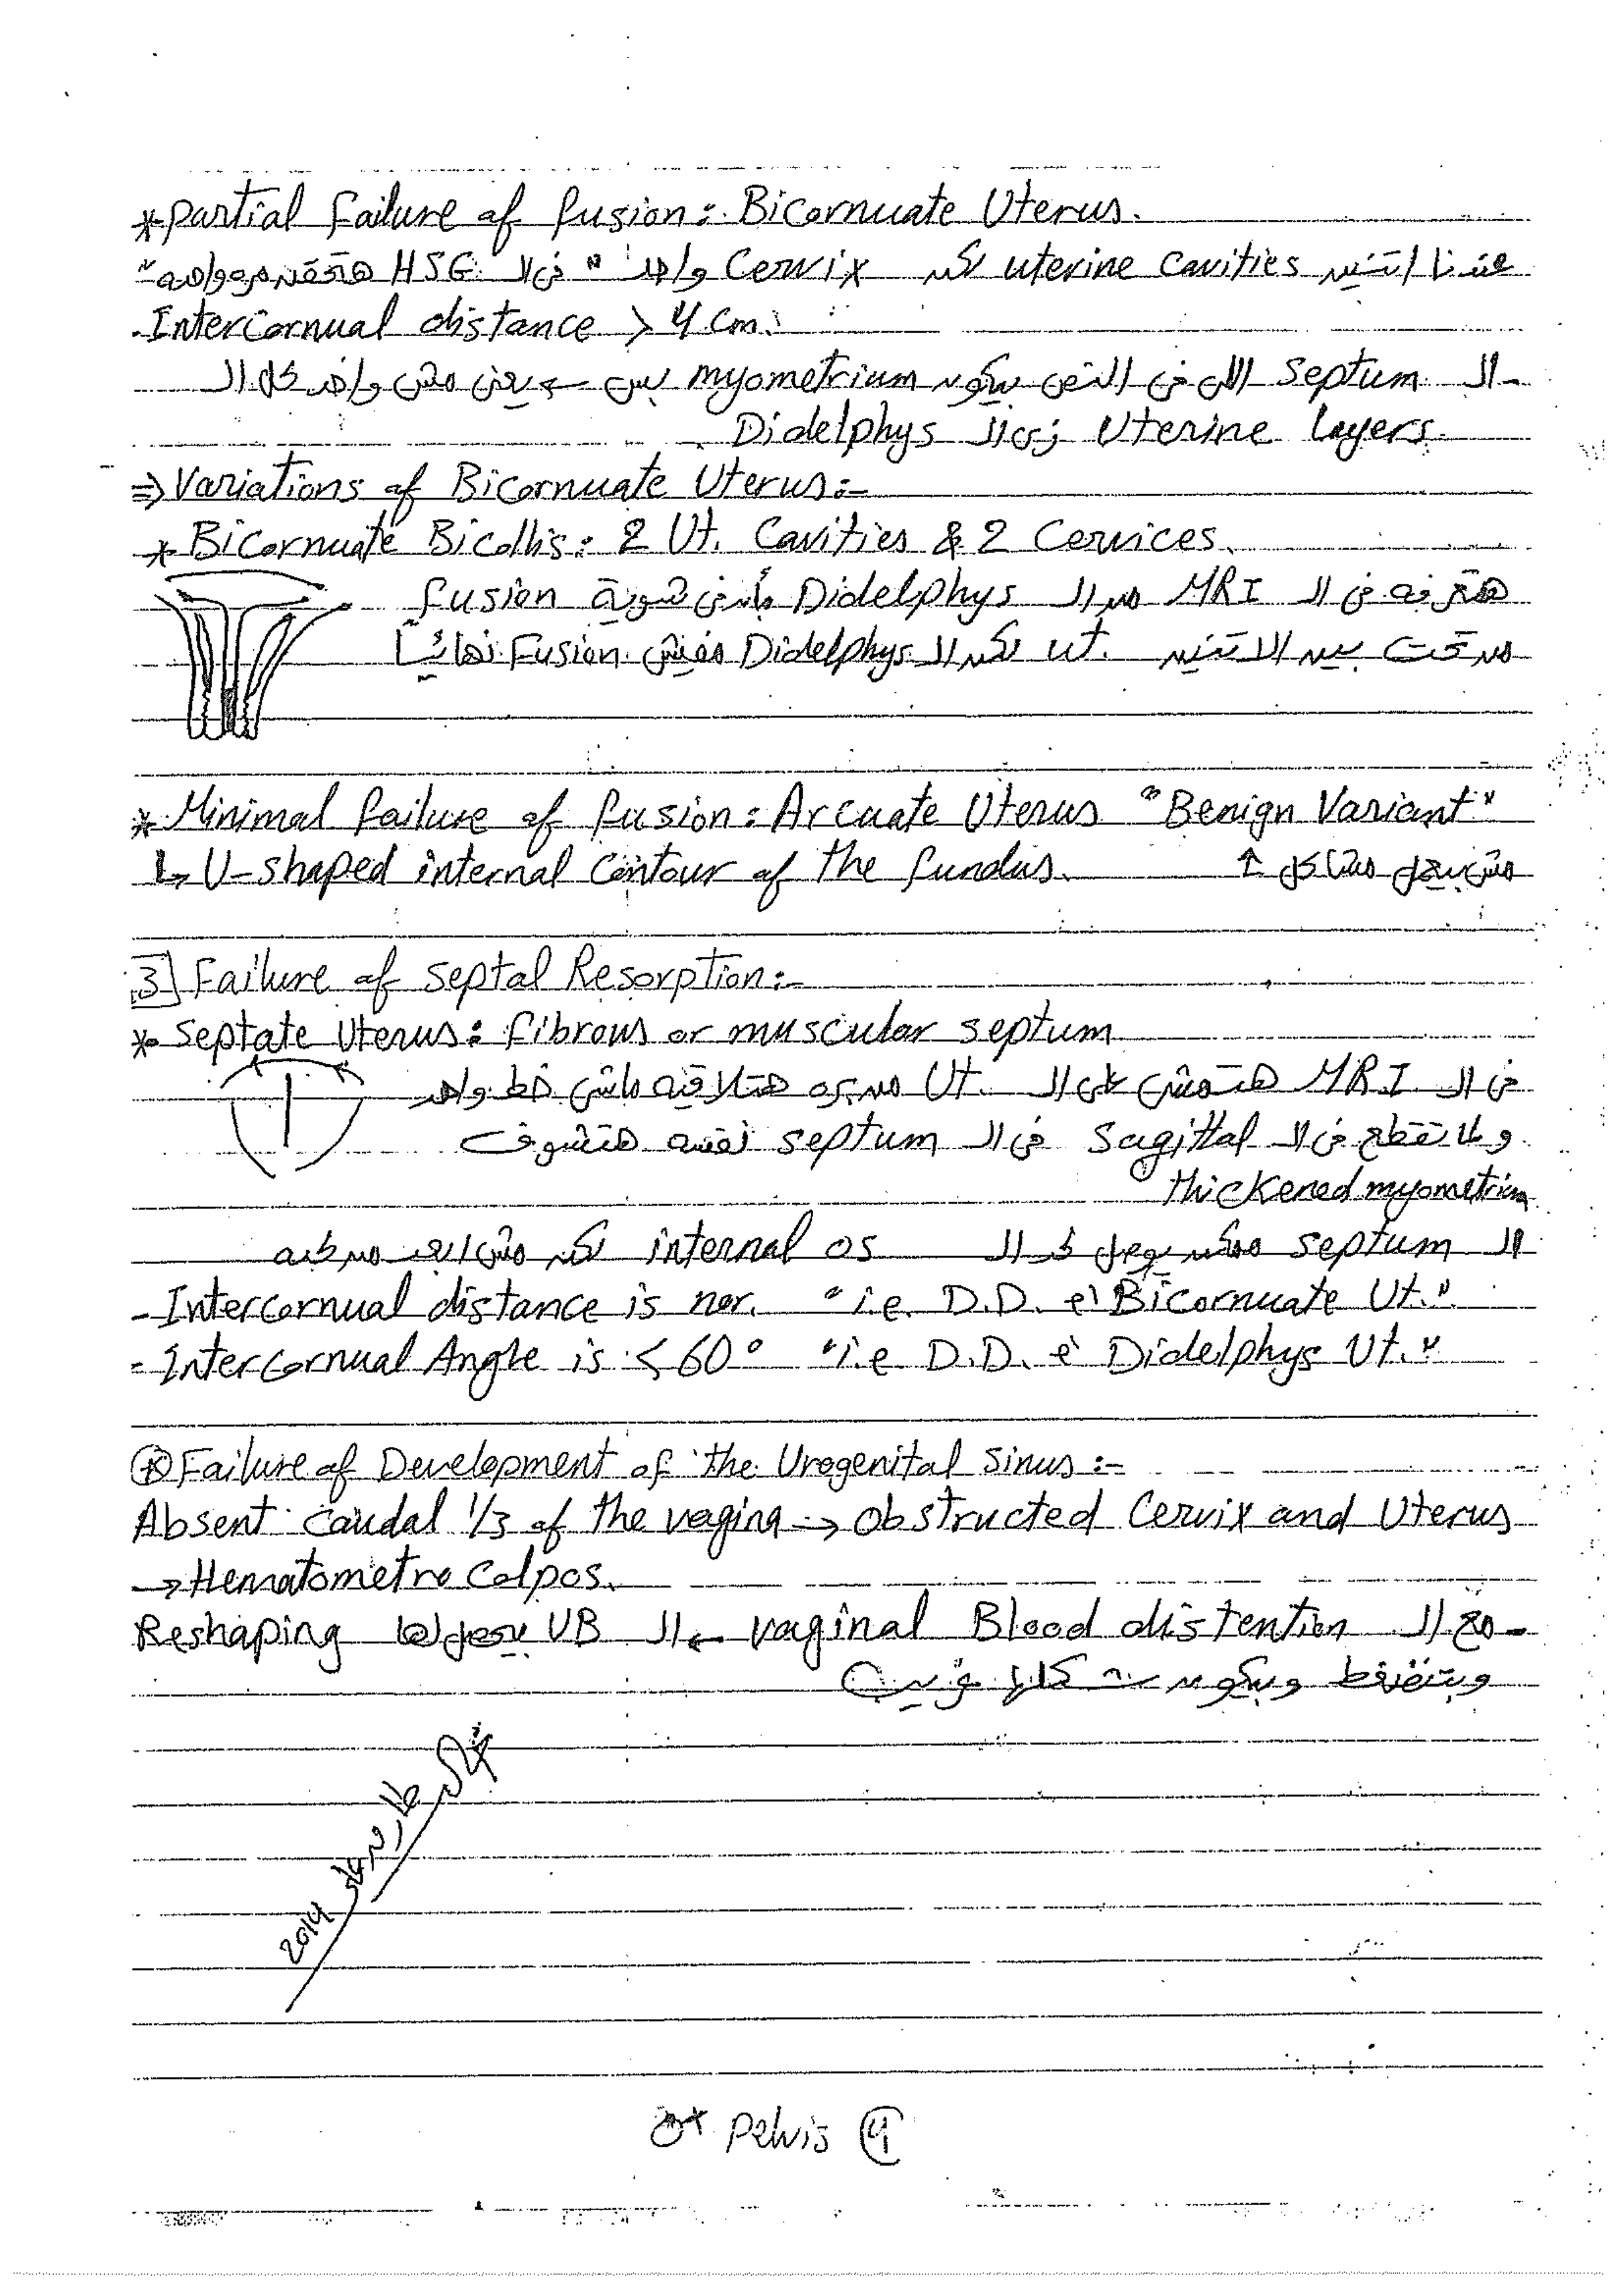 * Partial Failure of fusion: Bicornuate Uterus.
عندنا اتنين uterine cavities لكن Cervix واحد " فى الـ HSG هتحقن مرة واحدة "
- Intercornual distance > 4 Cm.
- الـ septum اللى فى النص بيكون myometrium بس ← يعنى مش واخد كل الـ
Uterine layers زى الـ Didelphys
⇒ Variations of Bicornuate Uterus:-
* Bicornuate Bicollis: 2 Ut. Cavities & 2 Cervices.
هتعرفه فى الـ MRI من الـ Didelphys بأن فى شوية fusion
من تحت بين الاتنين ut. لكن الـ Didelphys مفيش Fusion نهائياً
* Minimal failure of fusion: Arcuate Uterus "Benign Variant"
↳ U-shaped internal Contour of the fundus. مش بيعمل مشاكل ↑
3 Failure of Septal Resorption:-
* Septate Uterus: fibrous or muscular septum
فى الـ MRI هتمش على الـ Ut. من بره هتلاقيه ماشى خط واحد
و لما تقطع فى الـ Sagittal فى الـ septum نفسه هتشوف
thickened myometrium
الـ septum ممكن يوصل لـ الـ internal os لكن مش أبعد من كده
- Intercornual distance is nor. "i.e. D.D. è Bicornuate Ut."
- Intercornual Angle is < 60° "i.e D.D. è Didelphys Ut."
* Failure of Development of the Urogenital Sinus:-
Absent Caudal 1/3 of the vagina → obstructed Cervix and Uterus
→ Hematometro Colpos.
- مع الـ vaginal Blood distention ← الـ UB بيحصل لها Reshaping
وبتضغط وبيكون شكلها غريب
2014
♂* Pelvis 4